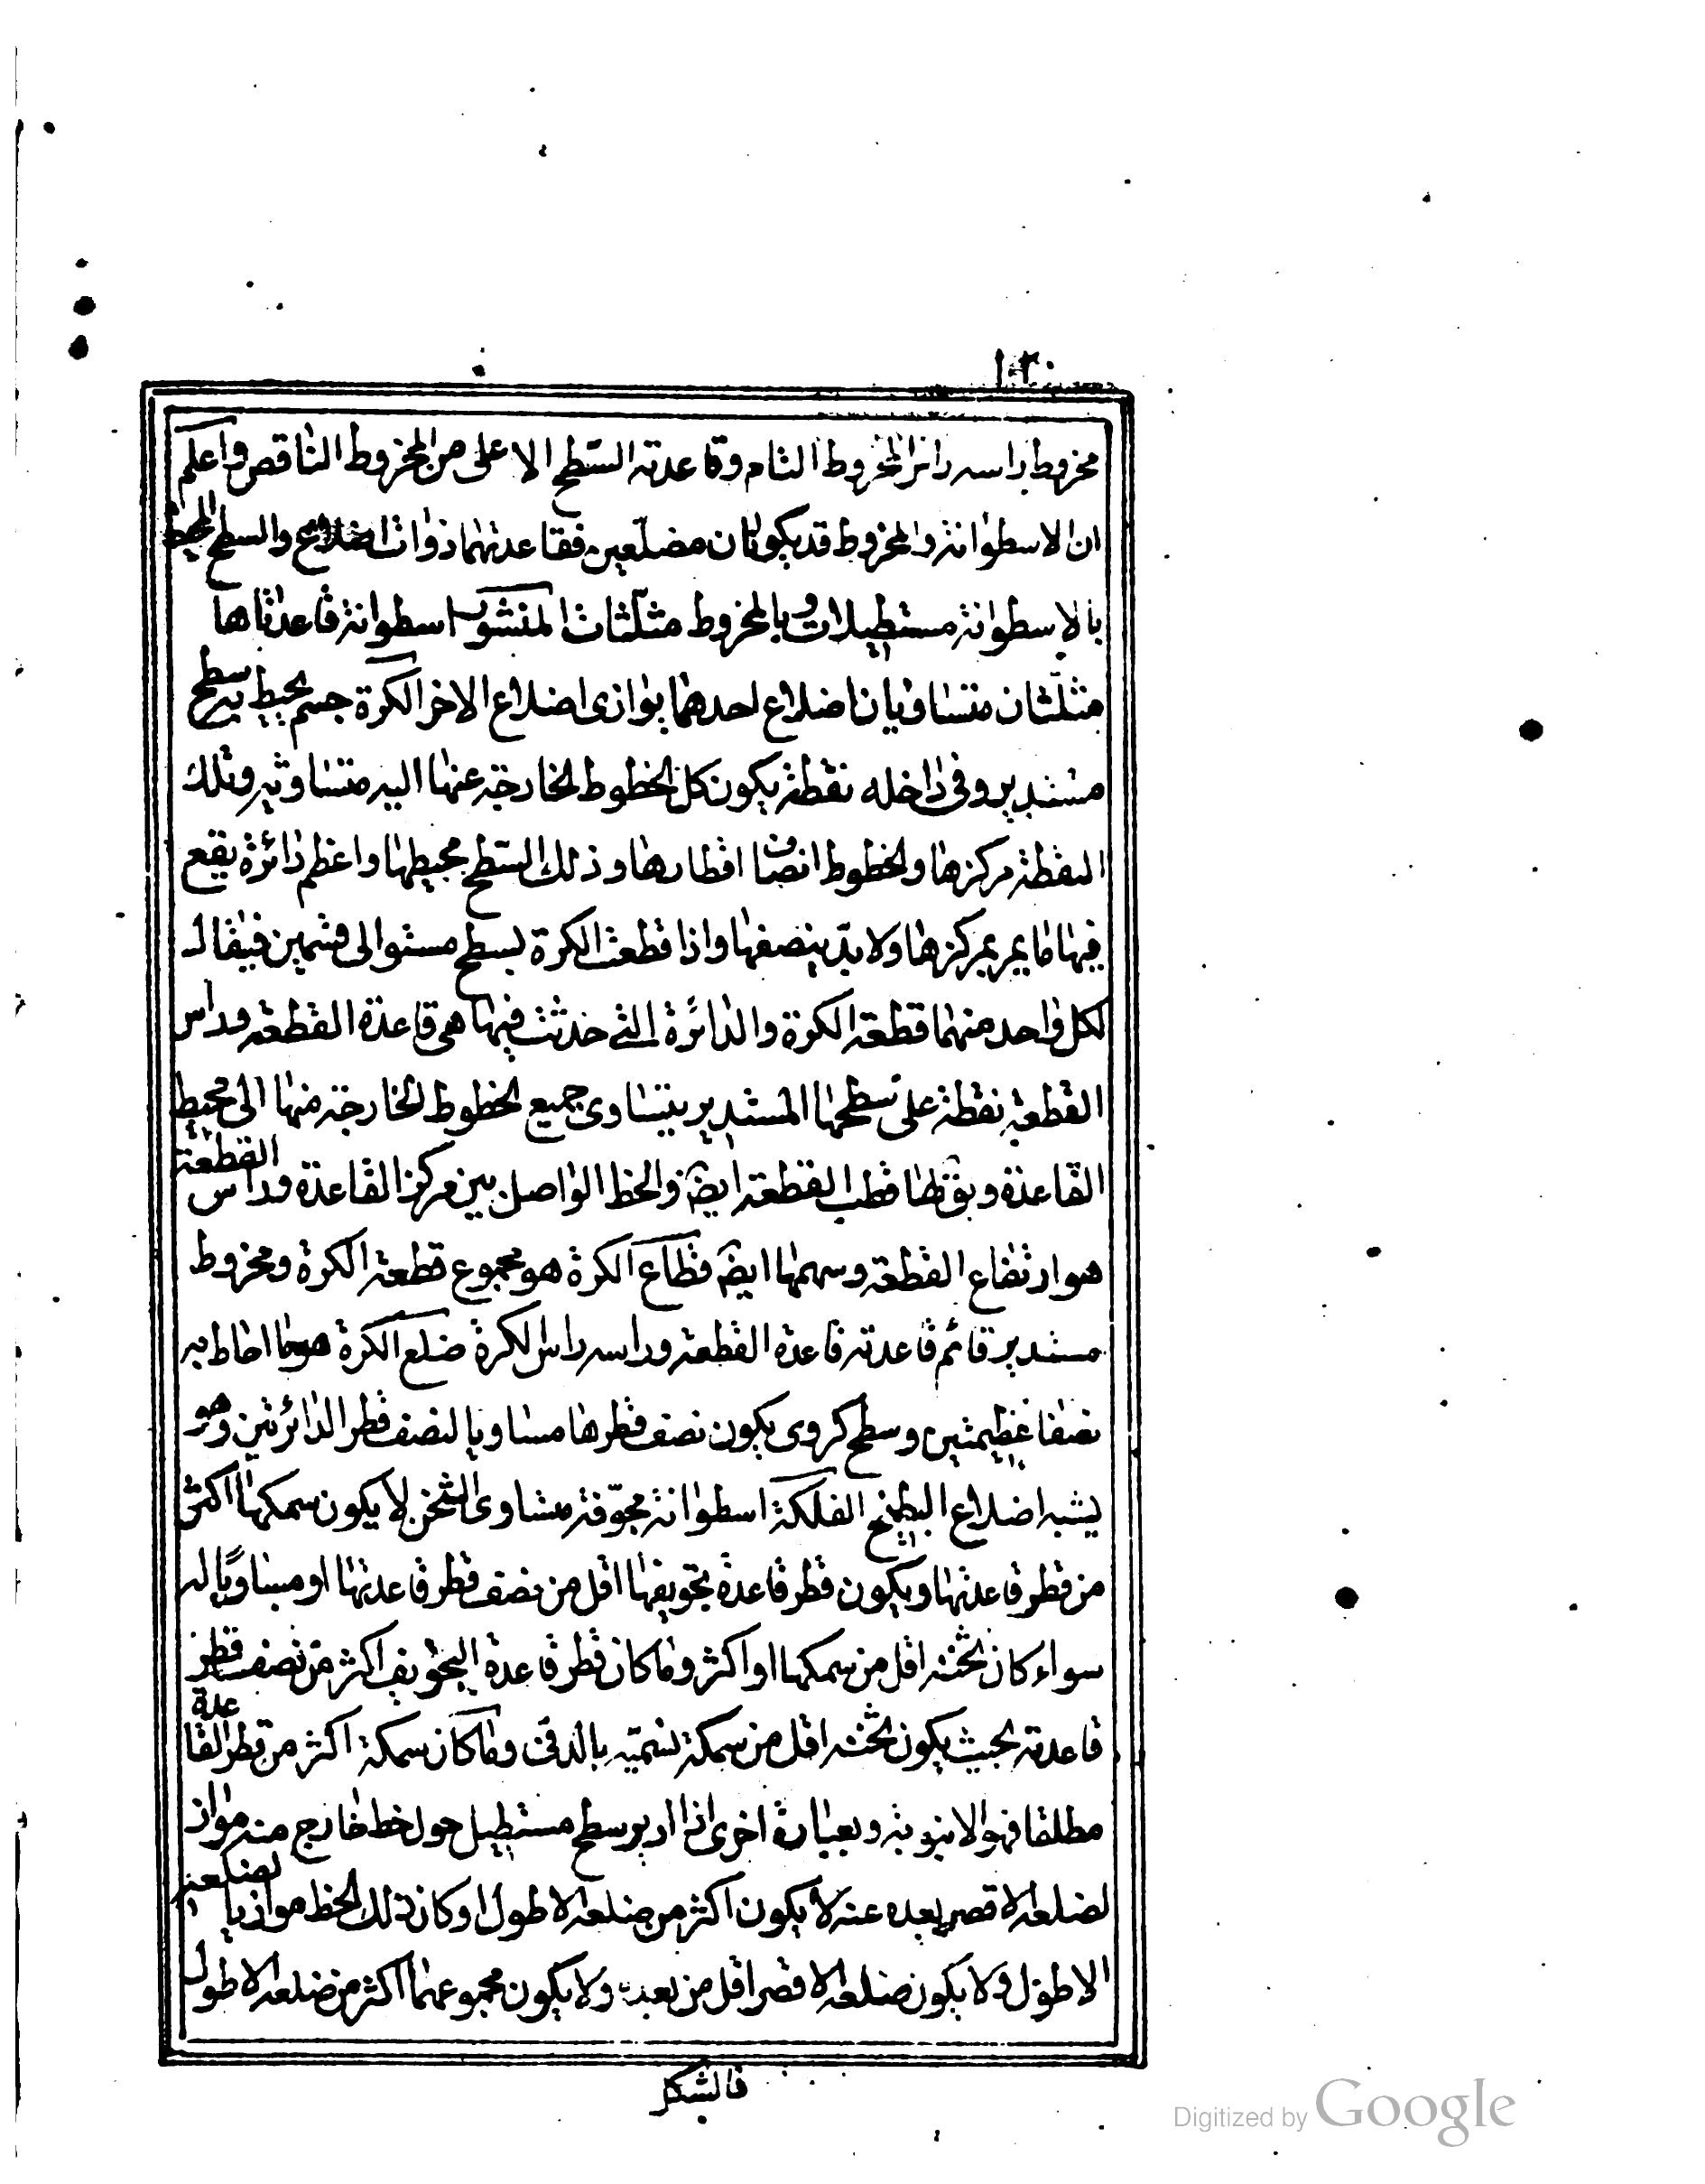 ١٣٠
مخروط راسه راس المخروط التام وقاعدته السطح الاعلى من المخروط الناقص واعلم
ان الاسطوانة والمخروط قد يكونان مضلّعين فقاعدتهما ذواتا اضلاع والسطح المحيط
بالاسطوانة مستطيلات وبالمخروط مثلّثات المنشور اسطوانة قاعدتاها
مثلّثان متساويان اضلاع احدهما يوازى اضلاع الاخر الكرة جسم يحيط به سطح
مستدير وفى داخله نقطة يكون كل الخطوط الخارجة عنها اليه متساوية وتلك
النقطة مركزها والخطوط انصاف اقطارها وذلك السّطح محيطها واعظم دائرة يقع
فيها ما يمر بمركزها ولا بدّ ينصفها واذا قطعت الكرة بسطح مستو الى قسمين فيقال
لكل واحد منهما قطعة الكرة والدائرة التى حدثت فيها هى قاعدة القطعة وراس
القطعة نقطة على سطحها المستدير يتساوى جميع الخطوط الخارجة منها الى محيط
القاعدة ويق لها قطب القطعة ايضً والخط الواصل بين مركز القاعدة وراس القطعة
هو ارتفاع القطعة وسهمها ايضً قطاع الكرة هو مجموع قطعة الكرة ومخروط
مستدير قائم قاعدته قاعدة القطعة وراسه راس الكرة ضلع الكرة هو ما احاط به
نصفا عظيمتين وسطح كروى يكون نصف قطرها مساويا لنصف قطر الدائرتين وهو
يشبه اضلاع البطيخ الفلكة اسطوانة مجوّفة متساوى الثخن لا يكون سمكها اكثر
من قطر قاعدتها ويكون قطر قاعدة تجويفها اقل من نصف قطر قاعدتها او مساويًا له
سواء كان ثخنه اقل من سمكها او اكثر وما كان قطر قاعدة التجويف اكثر من نصف قطر
قاعدته بحيث يكون ثخنه اقل من سمكه نسمّيه بالدفى وما كان سمكه اكثر من قطر القاعدة
مطلقا فهو الانبوبة وبعبارة اخرى اذا ادير سطح مستطيل حول خط خارج منه مواز
لضلعه الاقصر بعده عنه لا يكون اكثر من ضلعه الاطول او كان ذلك الخط موازيا لضلعه
الاطول ولا يكون ضلعه الاقصر اقل من بعده ولا يكون مجموعهما اكثر من ضلعه الاطول
فالشكل
Digitized by Google